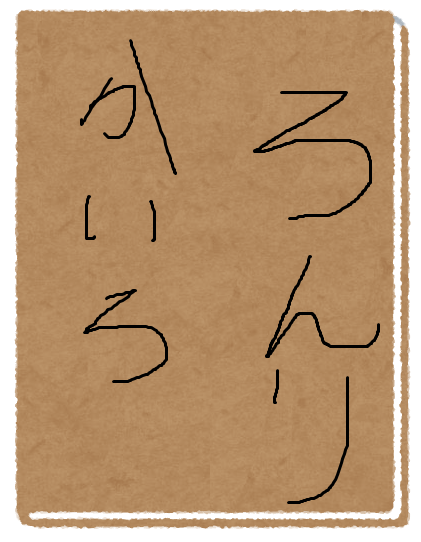 ろんり
かいろ